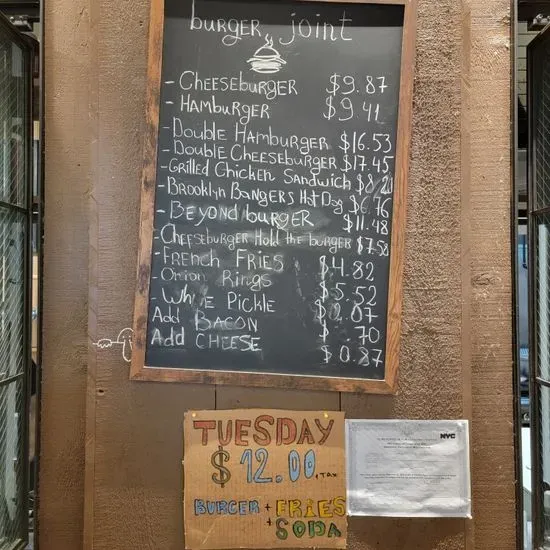 burger joint
- CHEESEBURGER $9.87
- HAMBURGER $9.41
- Double HAMBURGER $16.53
- Double CHEESEBURGER $17.45
- Grilled Chicken Sandwich $8.
- Brooklyn BANGERS Hot Dog $6.76
- BEYOND burger $11.48
- CHEESEBURGER Hold the burger $7.58
- FRENCH FRIES $4.82
- Onion Rings $5.52
- Whole Pickle $2.07
Add BACON $ .70
Add CHEESE $0.87
TUESDAY
$12.00 + TAX
BURGER + FRIES
+ SODA
NYC